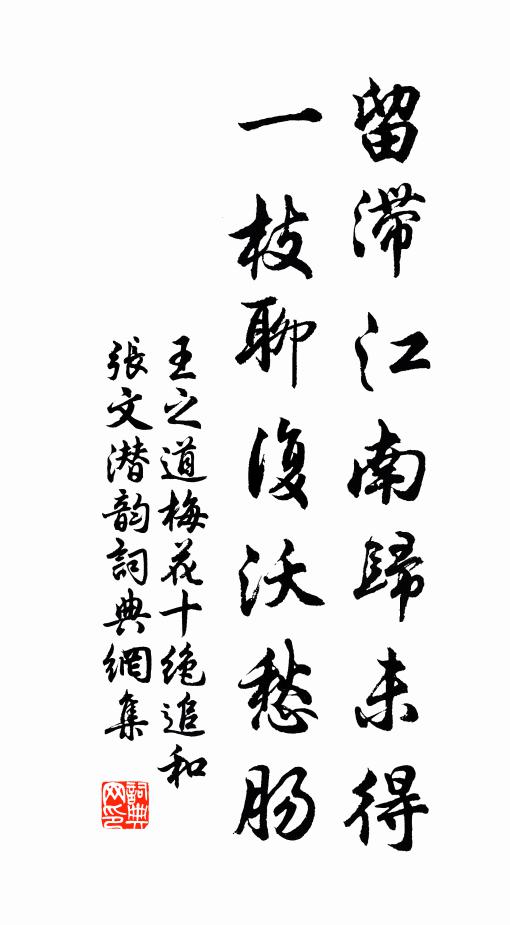 留滯江南歸未得
一枝聊復沃愁腸
王之道梅花十絶追和
張文潛韵詞典網集
詞典网印